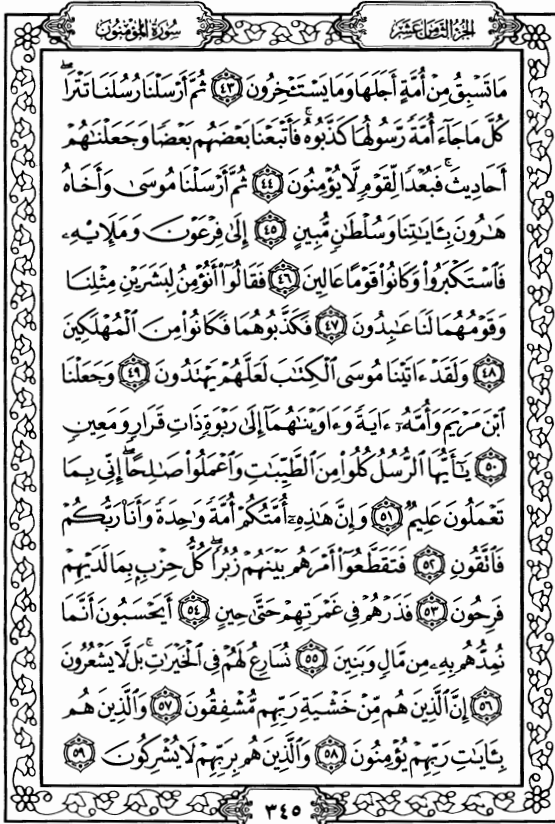 سُورَةُ المُؤْمِنُونَ
الجُزْءُ الثَّامِنَ عَشَرَ
مَا تَسْبِقُ مِنْ أُمَّةٍ أَجَلَهَا وَمَا يَسْتَـْٔخِرُونَ ﴿٤٣﴾ ثُمَّ أَرْسَلْنَا رُسُلَنَا تَتْرَا ۖ
كُلَّ مَا جَآءَ أُمَّةً رَّسُولُهَا كَذَّبُوهُ ۚ فَأَتْبَعْنَا بَعْضَهُم بَعْضًا وَجَعَلْنَٰهُمْ
أَحَادِيثَ ۚ فَبُعْدًا لِّقَوْمٍ لَّا يُؤْمِنُونَ ﴿٤٤﴾ ثُمَّ أَرْسَلْنَا مُوسَىٰ وَأَخَاهُ
هَٰرُونَ بِـَٔايَٰتِنَا وَسُلْطَٰنٍ مُّبِينٍ ﴿٤٥﴾ إِلَىٰ فِرْعَوْنَ وَمَلَإِيْهِۦ
فَٱسْتَكْبَرُوا۟ وَكَانُوا۟ قَوْمًا عَالِينَ ﴿٤٦﴾ فَقَالُوٓا۟ أَنُؤْمِنُ لِبَشَرَيْنِ مِثْلِنَا
وَقَوْمُهُمَا لَنَا عَٰبِدُونَ ﴿٤٧﴾ فَكَذَّبُوهُمَا فَكَانُوا۟ مِنَ ٱلْمُهْلَكِينَ
﴿٤٨﴾ وَلَقَدْ ءَاتَيْنَا مُوسَى ٱلْكِتَٰبَ لَعَلَّهُمْ يَهْتَدُونَ ﴿٤٩﴾ وَجَعَلْنَا
ٱبْنَ مَرْيَمَ وَأُمَّهُۥٓ ءَايَةً وَءَاوَيْنَٰهُمَآ إِلَىٰ رَبْوَةٍ ذَاتِ قَرَارٍ وَمَعِينٍ
﴿٥٠﴾ يَٰٓأَيُّهَا ٱلرُّسُلُ كُلُوا۟ مِنَ ٱلطَّيِّبَٰتِ وَٱعْمَلُوا۟ صَٰلِحًا ۖ إِنِّى بِمَا
تَعْمَلُونَ عَلِيمٌ ﴿٥١﴾ وَإِنَّ هَٰذِهِۦٓ أُمَّتُكُمْ أُمَّةً وَٰحِدَةً وَأَنَا۠ رَبُّكُمْ
فَٱتَّقُونِ ﴿٥٢﴾ فَتَقَطَّعُوٓا۟ أَمْرَهُم بَيْنَهُمْ زُبُرًا ۖ كُلُّ حِزْبٍۭ بِمَا لَدَيْهِمْ
فَرِحُونَ ﴿٥٣﴾ فَذَرْهُمْ فِى غَمْرَتِهِمْ حَتَّىٰ حِينٍ ﴿٥٤﴾ أَيَحْسَبُونَ أَنَّمَا
نُمِدُّهُم بِهِۦ مِن مَّالٍ وَبَنِينَ ﴿٥٥﴾ نُسَارِعُ لَهُمْ فِى ٱلْخَيْرَٰتِ ۚ بَل لَّا يَشْعُرُونَ
﴿٥٦﴾ إِنَّ ٱلَّذِينَ هُم مِّنْ خَشْيَةِ رَبِّهِم مُّشْفِقُونَ ﴿٥٧﴾ وَٱلَّذِينَ هُم
بِـَٔايَٰتِ رَبِّهِمْ يُؤْمِنُونَ ﴿٥٨﴾ وَٱلَّذِينَ هُم بِرَبِّهِمْ لَا يُشْرِكُونَ ﴿٥٩﴾
٣٤٥